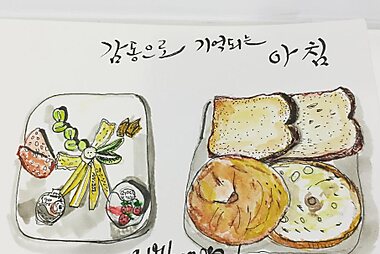 감동으로 기억되는 아침